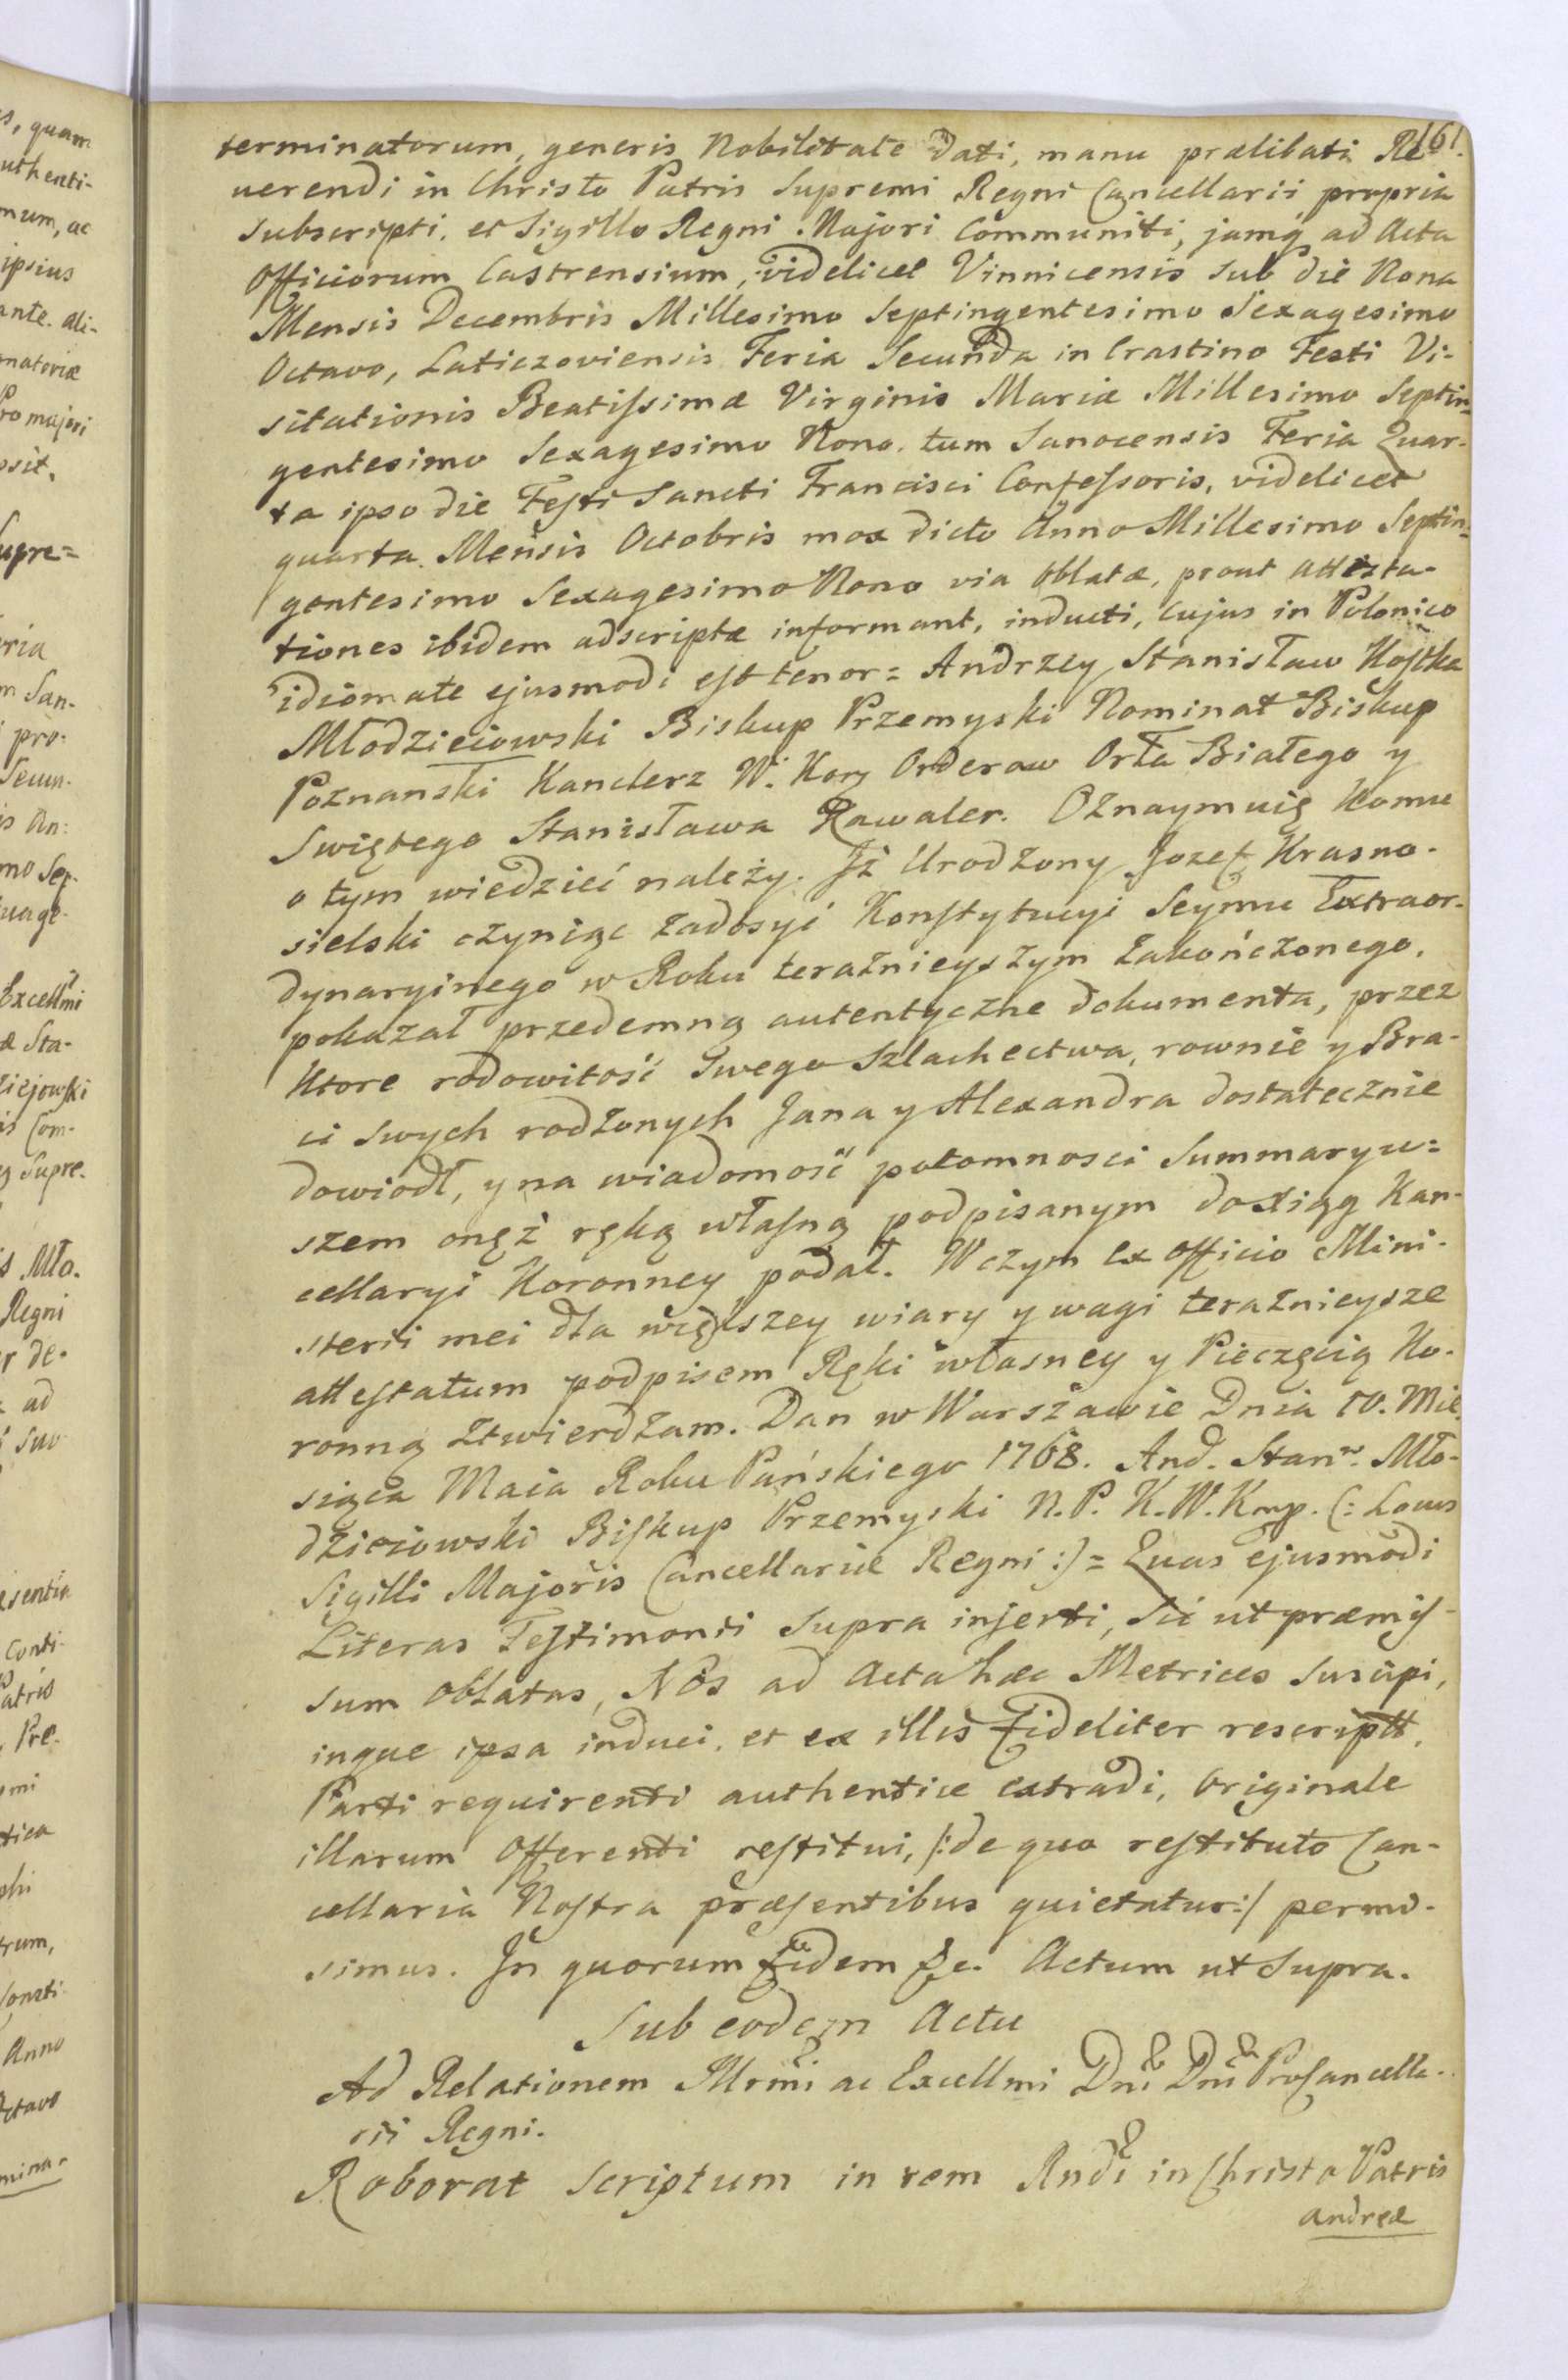 161.
terminatorum, generis Nobilitate dati, manu prælibati Re-
uerendi in Christo Patris Supremi Regni Cancellarii propria
subscripti, et Sigillo Regni Majori Communiti, jamq ad Acta
Officiorum Castrensium, videlicet Vinnicensis sub die Nona
Mensis Decembris Millesimo Septingentesimo Sexagesimo
Octavo, Laticzoviensis Feria Secunda in Crastino Festi Vi-
sitationis Beatissimæ Virginis Mariæ Millesimo Septin=
gentesimo Sexagesimo Nono. tum Sanocensis Feria Quar-
ta ipso die Festi Sancti Francisci Confessoris, videlicet
quarta Mensis Octobris mox dicto Anno Millesimo Septin=
gentesimo Sexagesimo Nono via Oblatæ, prout attesta-
tiones ibidem adscriptæ informant, inducti, cujus in Polonico
idiomate ejusmodi est tenor = Andrzey Stanisław Kostka
Młodzieiowski Biskup Przemyski Nominat Biskup
Poznanski Kanclerz W. Kory Orderow Orła Białego y
Swiętego Stanisława Kawaler. Oznaymuię Komu
o tym wiedzieć należy. Jż Urodzony Jozef Krasno-
sielski czyniąc zadosyć Konstytucyi Seymu Extraor-
dynaryinego w Roku teraznieyszym zakończonego,
pokazał przedemną autentyczne dokumenta, przez
Ktore rodowitość Swego Szlachectwa, rownie y Bra-
ci swych rodzonych Jana y Alexandra dostatecznie
dowiodł, y na wiadomość potomnosci Summaryu=
szem onęż ręką własną podpisanym do xiąg Kan-
cellaryi Koronney podał. W czym ex officio Mini-
sterii mei dla większey wiary y wagi teraznieysze
attestatum podpisem Ręki własney y Pieczęcią Ko-
ronną ztwierdzam. Dan w Warszawie Dnia 10. Mie-
siąca Maia Roku Pańskiego 1768. And. Stanw. Mło-
dzieiowski Biskup Przemyski N. P. K. W. K mp. (: Locus
Sigilli Majoris Cancellariæ Regni :) = Quas ejusmodi
Literas Testimonii supra inserti, sic ut præmis-
sum oblatas, Nos ad Acta hæc Metrices suscipi,
inque ipsa induci, et ex illis fideliter rescriptt,
Parti requirenti authentice extradi, Originale
illarum Offerenti restitui, /: de quo restituto Can-
cellaria Nostra præsentibus quietatur :/ permi-
simus. In quorum fidem &c. Actum ut supra.
Sub eodem Actu
Ad Relationem Illrmi ac Excellmi Dni Dni ProCancella-
rii Regni.
Roborat Scriptum in rem Rndi in Christo Patris
Andreæ